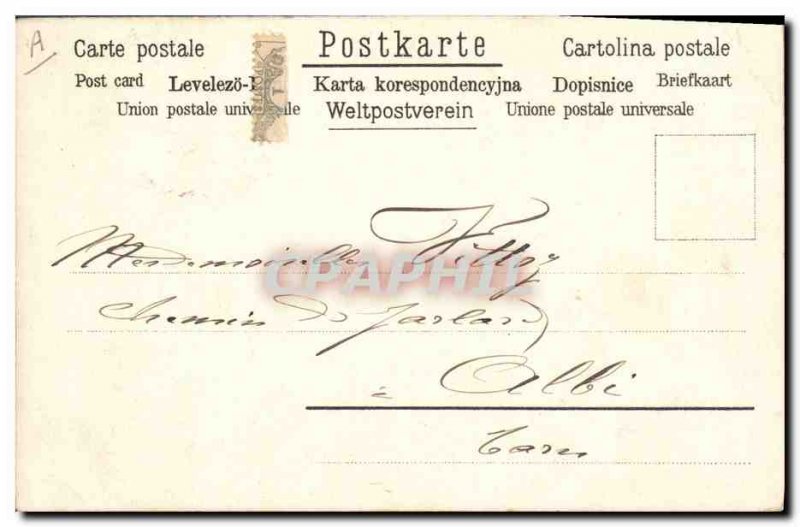 A
Carte postale Postkarte Cartolina postale
Post card Levelező- Karta korespondencyjna Dopisnice Briefkaart
Union postale universelle Weltpostverein Unione postale universale
Mademoiselle
CPAPHIL
Chemin de Jarlard
à Albi
Tarn